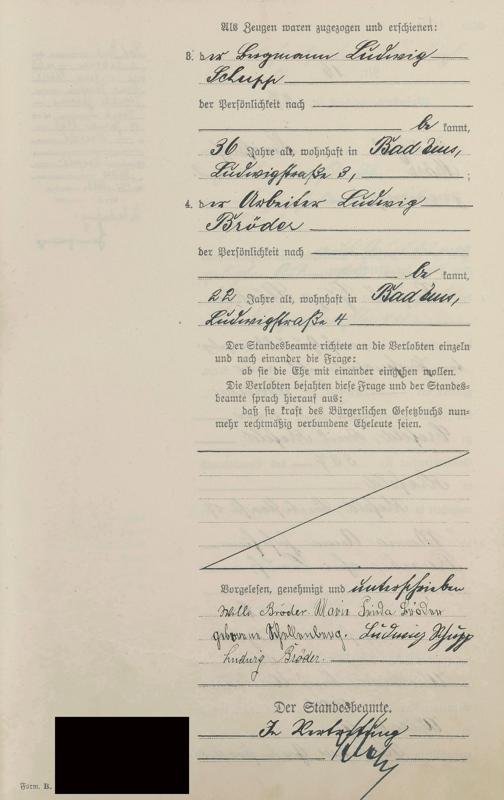 Als Zeugen waren zugezogen und erschienen:
3. der Bergmann Ludwig
Schupp
der Persönlichkeit nach
be kannt,
36 Jahre alt, wohnhaft in Bad Ems,
Ludwigstraße 3, ;
4. der Arbeiter Ludwig
Bröder
der Persönlichkeit nach
be kannt,
22 Jahre alt, wohnhaft in Bad Ems,
Ludwigstraße 4
Der Standesbeamte richtete an die Verlobten einzeln
und nach einander die Frage:
ob sie die Ehe mit einander eingehen wollen.
Die Verlobten bejahten diese Frage und der Standes-
beamte sprach hierauf aus:
daß sie kraft des Bürgerlichen Gesetzbuchs nun-
mehr rechtmäßig verbundene Eheleute seien.
Vorgelesen, genehmigt und unterschrieben
Bröder. Marie Frida Bröder
geborene Schellenberg. Ludwig Schupp
Ludwig Bröder.
Der Standesbeamte.
In Vertretung
Form. B.